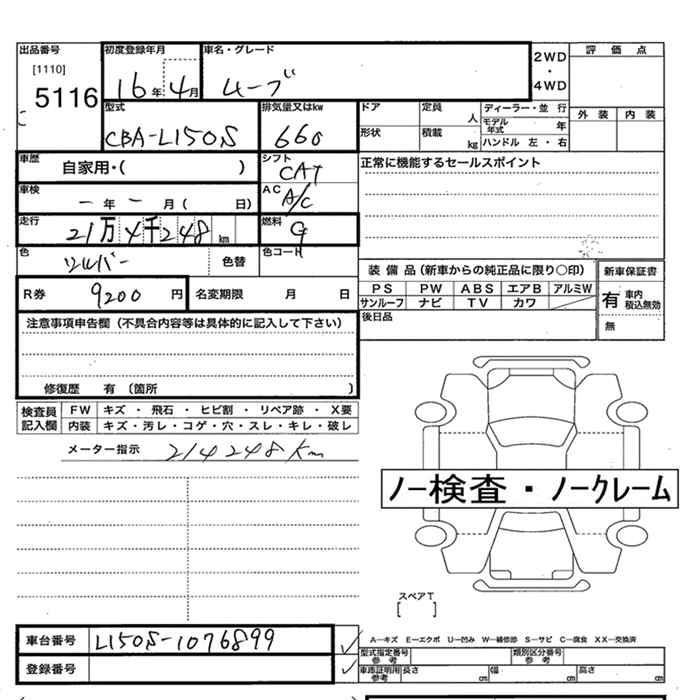 出品番号 初度登録年月 車名・グレード 2WD・4WD 評価点
[1110]
5116 16年4月 ムーブ
型式 排気量又はkw ドア 定員 人 ディーラー・並行 外装 内装
CBA-L150S 660 形状 積載 kg モデル年式 年
ハンドル 左・右
車歴 自家用・( ) シフト CAT 正常に機能するセールスポイント
車検 ー年ー月( 日) AC A/C
走行 21万4千248km 燃料 G
色 シルバー 色替 色コードH 装備品(新車からの純正品に限り○印) 新車保証書
R券 9200円 名変期限 月 日 PS PW ABS エアB アルミW 有 車内積込無効
サンルーフ ナビ TV カワ 無
注意事項申告欄(不具合内容等は具体的に記入して下さい) 後日品
修復歴 有〔箇所 )
検査員記入欄 FW キズ・飛石・ヒビ割・リペア跡・X要
内装 キズ・汚レ・コゲ・穴・スレ・キレ・破レ
メーター指示 214248Km
ノー検査・ノークレーム
スペアT
[ ]
車台番号 L150S-1076899 A-キズ E-エクボ U-凹み W-補修跡 S-サビ C-腐食 XX-交換済
型式指定番号 参考 類別区分番号 参考
登録番号 車庫証明用 参考 長さ cm 幅 cm 高さ cm